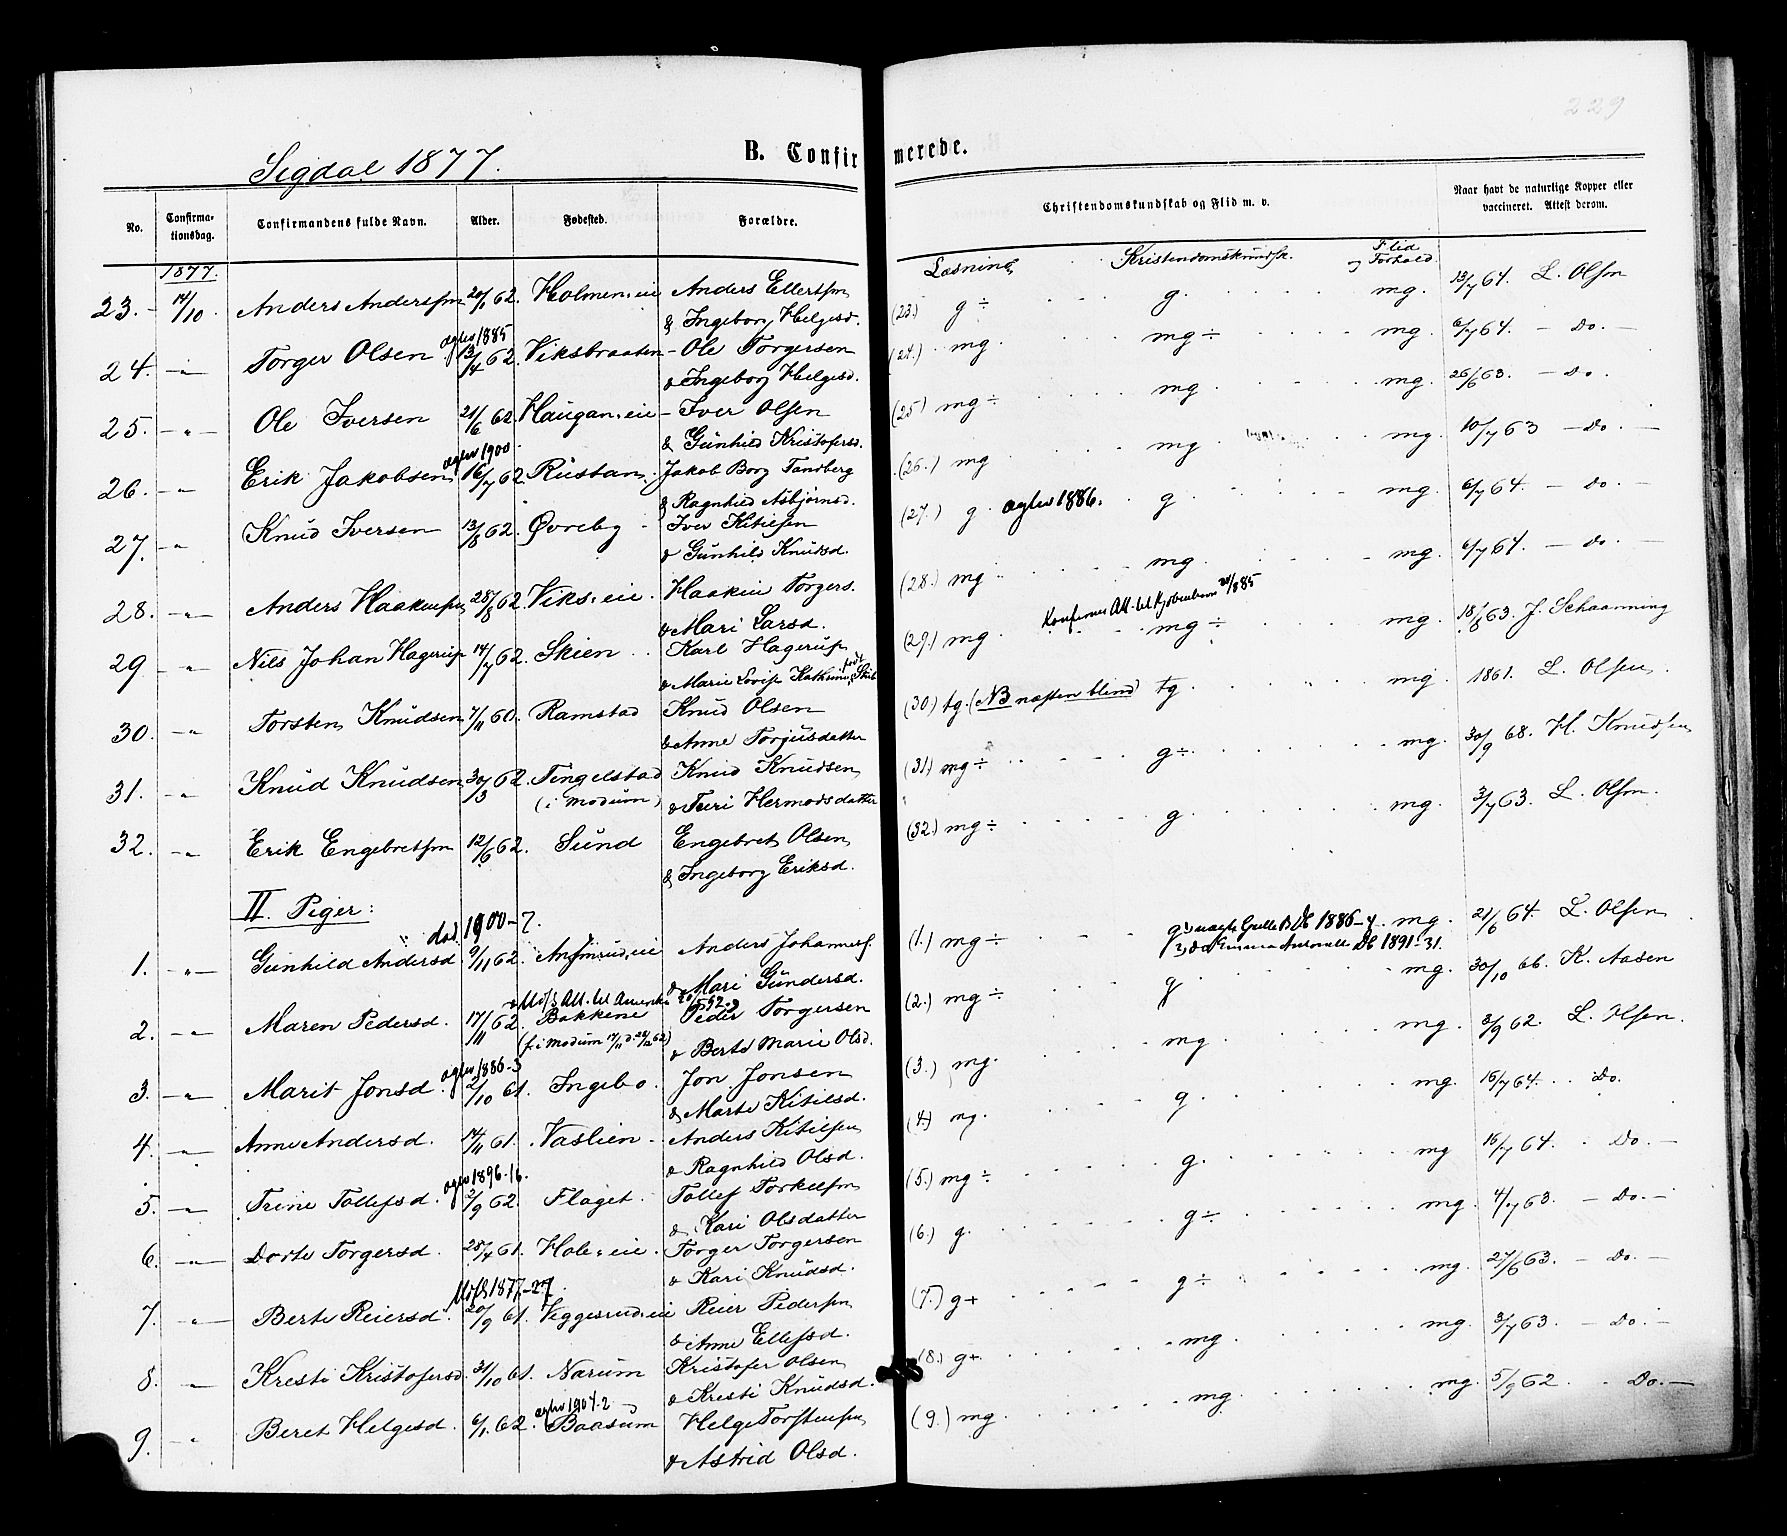 229
Sigdal 1877.
B. Confirmerede.
No. Confirma-tionsdag. Confirmandens fulde Navn. Alder. Fødested. Forældre. Christendomskundskab og Flid m. v. Naar havt de naturlige Kopper eller vaccineret. Attest derom.
1877. Læsning Kristendomskundsk. Flid og Forhold
23. 14/10 Anders Andersen 20/1 62. Holmen-eie Anders Ellertsen (23.) g ÷ g. mg. 13/7 64. L. Olsen
& Ingeborg Helgesd.
aglev 1885
24. -"- Torger Olsen 13/4 62. Viksbraaten - Ole Torgersen (24.) mg. mg ÷ mg. 6/7 64. - Do. -
& Ingeborg Helgesd.
25. -"- Ole Iversen 21/6 62. Haugan-eie - Iver Olsen (25) mg ÷ mg. mg. 26/6 63. - Do.
& Gunhild Kristofersd.
aglev 1900
26. -"- Erik Jakobsen 16/7 62. Rustan. Jakob Borg Tandberg (26.) mg mg. mg. 10/7 63 - Do. -
& Ragnhild Asbjørnsd.
27. -"- Knud Iversen 13/8 62. Øvreby - Iver Kitilsen (27.) g. aglev 1886. g mg. 6/7 64. - Do. -
& Gunhild Knudsd.
28. -"- Anders Haakensen 28/8 62. Viks-eie. Haaken Torgers. (28.) mg mg. mg. 6/7 64. - Do. -
& Mari Larsd.
Konfirms Att. til Kjøbenhavn 885
29 -"- Nils Johan Hagerup 14/7 62. Skien Karl Hagerup (29.) mg. mg ÷ mg. 18/8 63. J. Schaanning
& Marie Lovise Kathrine født
30. -"- Torsten Knudsen 7/11 60. Ramstad Knud Olsen (30.) tg. (NB næsten blind) tg. mg. 1861. L. Olsen.
& Anne Torjusdatter
31. -"- Knud Knudsen 30/3 62. Tingelstad Knud Knudsen (31.) mg ÷ g ÷ mg. 30/9 68. H. Knudsen
(i Modum) & Turi Hermodsdatter
32. -"- Erik Engebretsen 12/6 62. Sund Engebret Olsen (32.) mg ÷ g. mg. 3/7 63. L. Olsen.
& Ingeborg Eriksd.
II. Piger:
død 1900-7.
1. -"- Gunhild Andersd 9/11 62. Anders Johannes. (1.) mg ÷ g mg. 21/6 64. L. Olsen
& Mari Gundersd.
Att. til Amerika
2. -"- Maren Pedersd. 17/11 62. Bakkene Peder Torgersen (2.) mg ÷ g mg. 30/10 66. K. Aasen
& Berte Marie Olsd.
aglev 1886-3
3. -"- Marit Jonsd. 2/10 61. Ingebo. Jon Jonsen (3.) mg. mg. mg. 8/9 62. L. Olsen.
& Marte Kitilsd.
4. -"- Anne Andersd. 14/11 61. Vaslien - Anders Kitilsen (4.) mg. g. mg. 15/7 64. Do.
& Ragnhild Olsd.
aglev 1896-16.
5. -"- Trine Tollefsd. 2/9 62. Flaget. Tollef Torkelsen (5.) mg ÷ g. mg 15/7 64. Do. -
& Kari Olsdatter
6. -"- Dorte Torgersd. 28/4 61. Hole-eie. Torger Torgersen (6.) g. g ÷ mg. 4/7 63. - Do. -
& Kari Knudsd.
1877-27.
7. -"- Berte Reiersd. 20/9 61. Veggesrud-eie Reier Pedersen (7.) g+ g ÷ mg. 27/6 63. - Do. -
& Anne Ellefsd.
8. -"- Kresti Kristofersd. 31/10 61. Narum Kristofer Olsen (8.) g+. mg. mg. 3/7 63. - Do. -
& Kresti Knudsd.
aglev 1904-2
9. -"- Beret Helgesd. 6/1 62. Baasum Helge Torstensen (9.) mg. mg. mg. 5/9 62. Do. -
& Astrid Olsd.